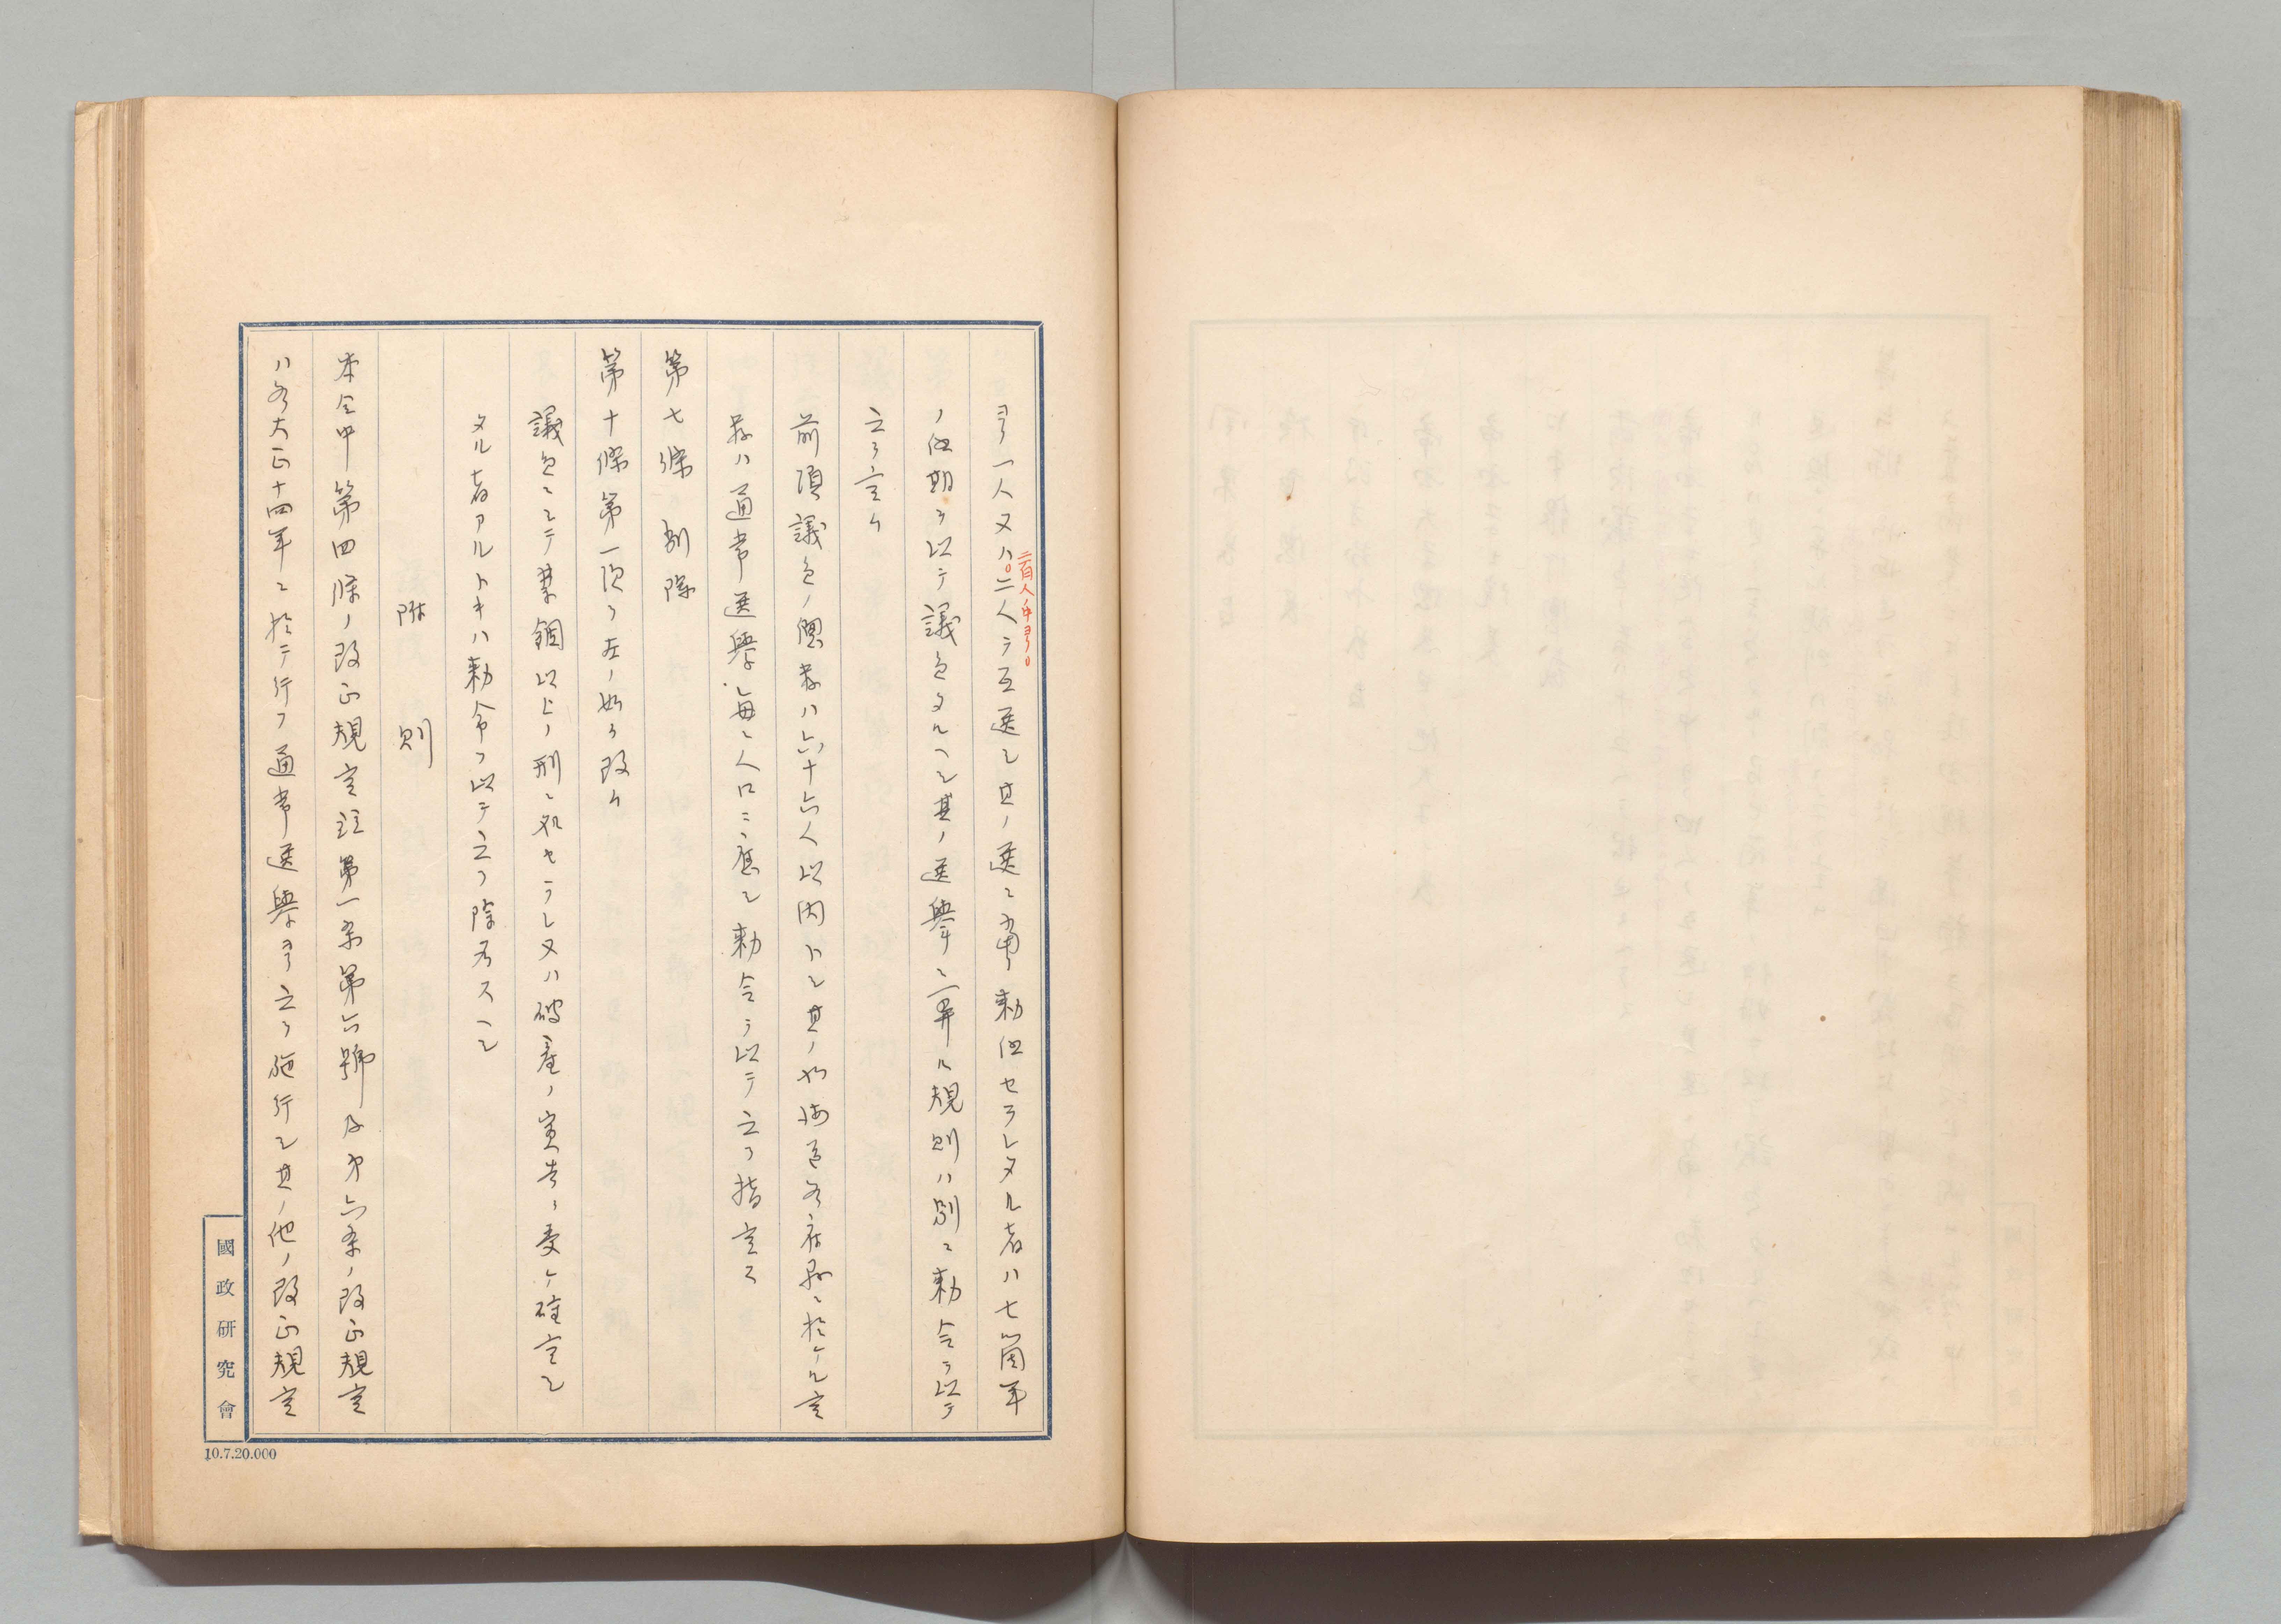 ヨリ一人又ハ二人ヲ互選シ其ノ選ニ當リ勅任セラレタル者ハ七箇年
二百人中ヨリ
ノ任期ヲ以テ議員タルヘシ其ノ選擧ニ關スル規則ハ別ニ勅令ヲ以テ
之ヲ定ム
前項議員ノ總數ハ六十六人以内トシ其ノ北海道各府縣ニ於ケル定
數ハ通常選擧毎ニ人口ニ應シ勅令ヲ以テ之ヲ指定ス
第七條 削除
第十條第一項ヲ左ノ如ク改ム
議員ニシテ禁錮以上ノ刑ニ處セラレ又ハ破産ノ宣告ヲ受ケ確定シ
タル者アルトキハ勅令ヲ以テ之ヲ除名スヘシ
附則
本令中第四條ノ改正規定竝第一条第六號及第六条ノ改正規定
ハ各大正十四年ニ於テ行フ通常選擧ヨリ之ヲ施行シ其ノ他ノ改正規定
國政研究會
10.7.20.000